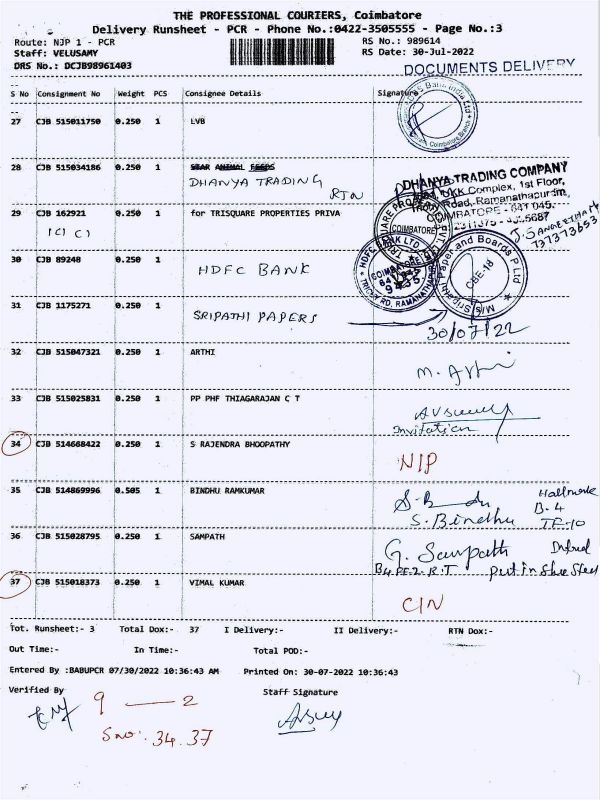 THE PROFESSIONAL COURIERS, Coimbatore
Delivery Runsheet - PCR - Phone No.:0422-3505555 - Page No.:3
Route: NJP 1 - PCR RS No.: 989614
Staff: VELUSAMY RS Date: 30-Jul-2022
DRS No.: DCJB98961403
DOCUMENTS DELIVERY
S No Consignment No Weight PCS Consignee Details Signature
27 CJB 515011750 0.250 1 LVB
28 CJB 515034186 0.250 1 STAR ANIMAL FEEDS
DHANYA TRADING RTN
DHANYA TRADING COMPANY
KK Complex, 1st Floor,
Road, Ramanathapuram,
COIMBATORE - 641 045.
29 CJB 162921 0.250 1 for TRISQUARE PROPERTIES PRIVA
ICICI
COIMBATORE
30 CJB 89248 0.250 1
HDFC BANK
HDFC BANK LTD
COIMBATORE
TRICHY RD, RAMANATHAPURAM
M/s Sripathi Paper and Boards P Ltd
CBE-18
31 CJB 1175271 0.250 1
SRIPATHI PAPERS
30/07/22
32 CJB 515047321 0.250 1 ARTHI
M. Arthi
33 CJB 515025831 0.250 1 PP PHF THIAGARAJAN C T
Invitation
34 CJB 514668422 0.250 1 S RAJENDRA BHOOPATHY
NIP
35 CJB 514869996 0.505 1 BINDHU RAMKUMAR
Hallmark
B-4
S. Bindhu TF-10
36 CJB 515028795 0.250 1 SAMPATH
G. Sampath
put in Shoe
37 CJB 515018373 0.250 1 VIMAL KUMAR
CIN
Tot. Runsheet:- 3 Total Dox:- 37 I Delivery:- II Delivery:- RTN Dox:-
Out Time:- In Time:- Total POD:-
Entered By :BABUPCR 07/30/2022 10:36:43 AM Printed On: 30-07-2022 10:36:43
Verified By Staff Signature
9 — 2
S no: 34. 37